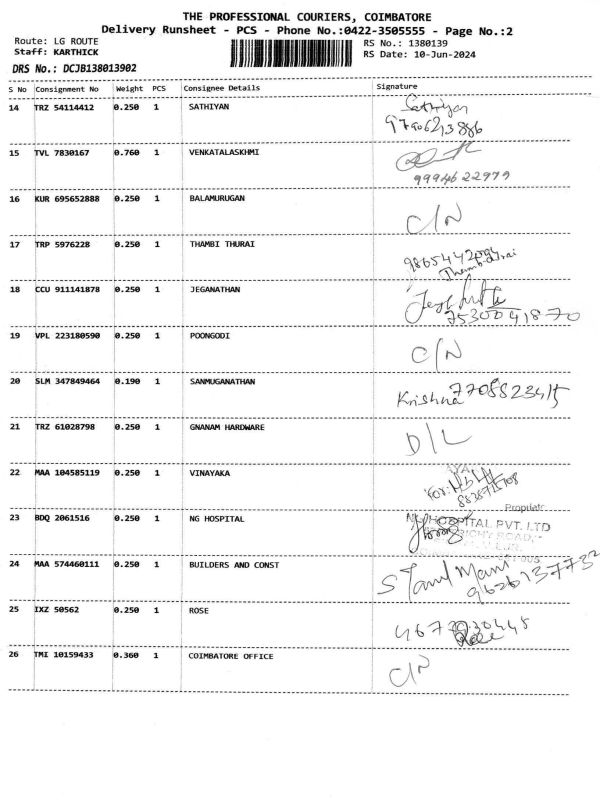 THE PROFESSIONAL COURIERS, COIMBATORE
Delivery Runsheet - PCS - Phone No.:0422-3505555 - Page No.:2
Route: LG ROUTE RS No.: 1380139
Staff: KARTHICK RS Date: 10-Jun-2024
DRS No.: DCJB138013902
S No Consignment No Weight PCS Consignee Details Signature
14 TRZ 54114412 0.250 1 SATHIYAN Sathiyan
15 TVL 7830167 0.760 1 VENKATALASKHMI
9994622979
16 KUR 695652888 0.250 1 BALAMURUGAN C/N
17 TRP 5976228 0.250 1 THAMBI THURAI
18 CCU 911141878 0.250 1 JEGANATHAN
7530041870
19 VPL 223180590 0.250 1 POONGODI C/N
20 SLM 347849464 0.190 1 SANMUGANATHAN Krishna 7708823415
21 TRZ 61028798 0.250 1 GNANAM HARDWARE D/L
22 MAA 104585119 0.250 1 VINAYAKA
Proprietr
23 BDQ 2061516 0.250 1 NG HOSPITAL HOSPITAL PVT. LTD
ROAD,
24 MAA 574460111 0.250 1 BUILDERS AND CONST S Tamil Mani
9626137732
25 IXZ 50562 0.250 1 ROSE
Rose
26 TMI 10159433 0.360 1 COIMBATORE OFFICE C/N